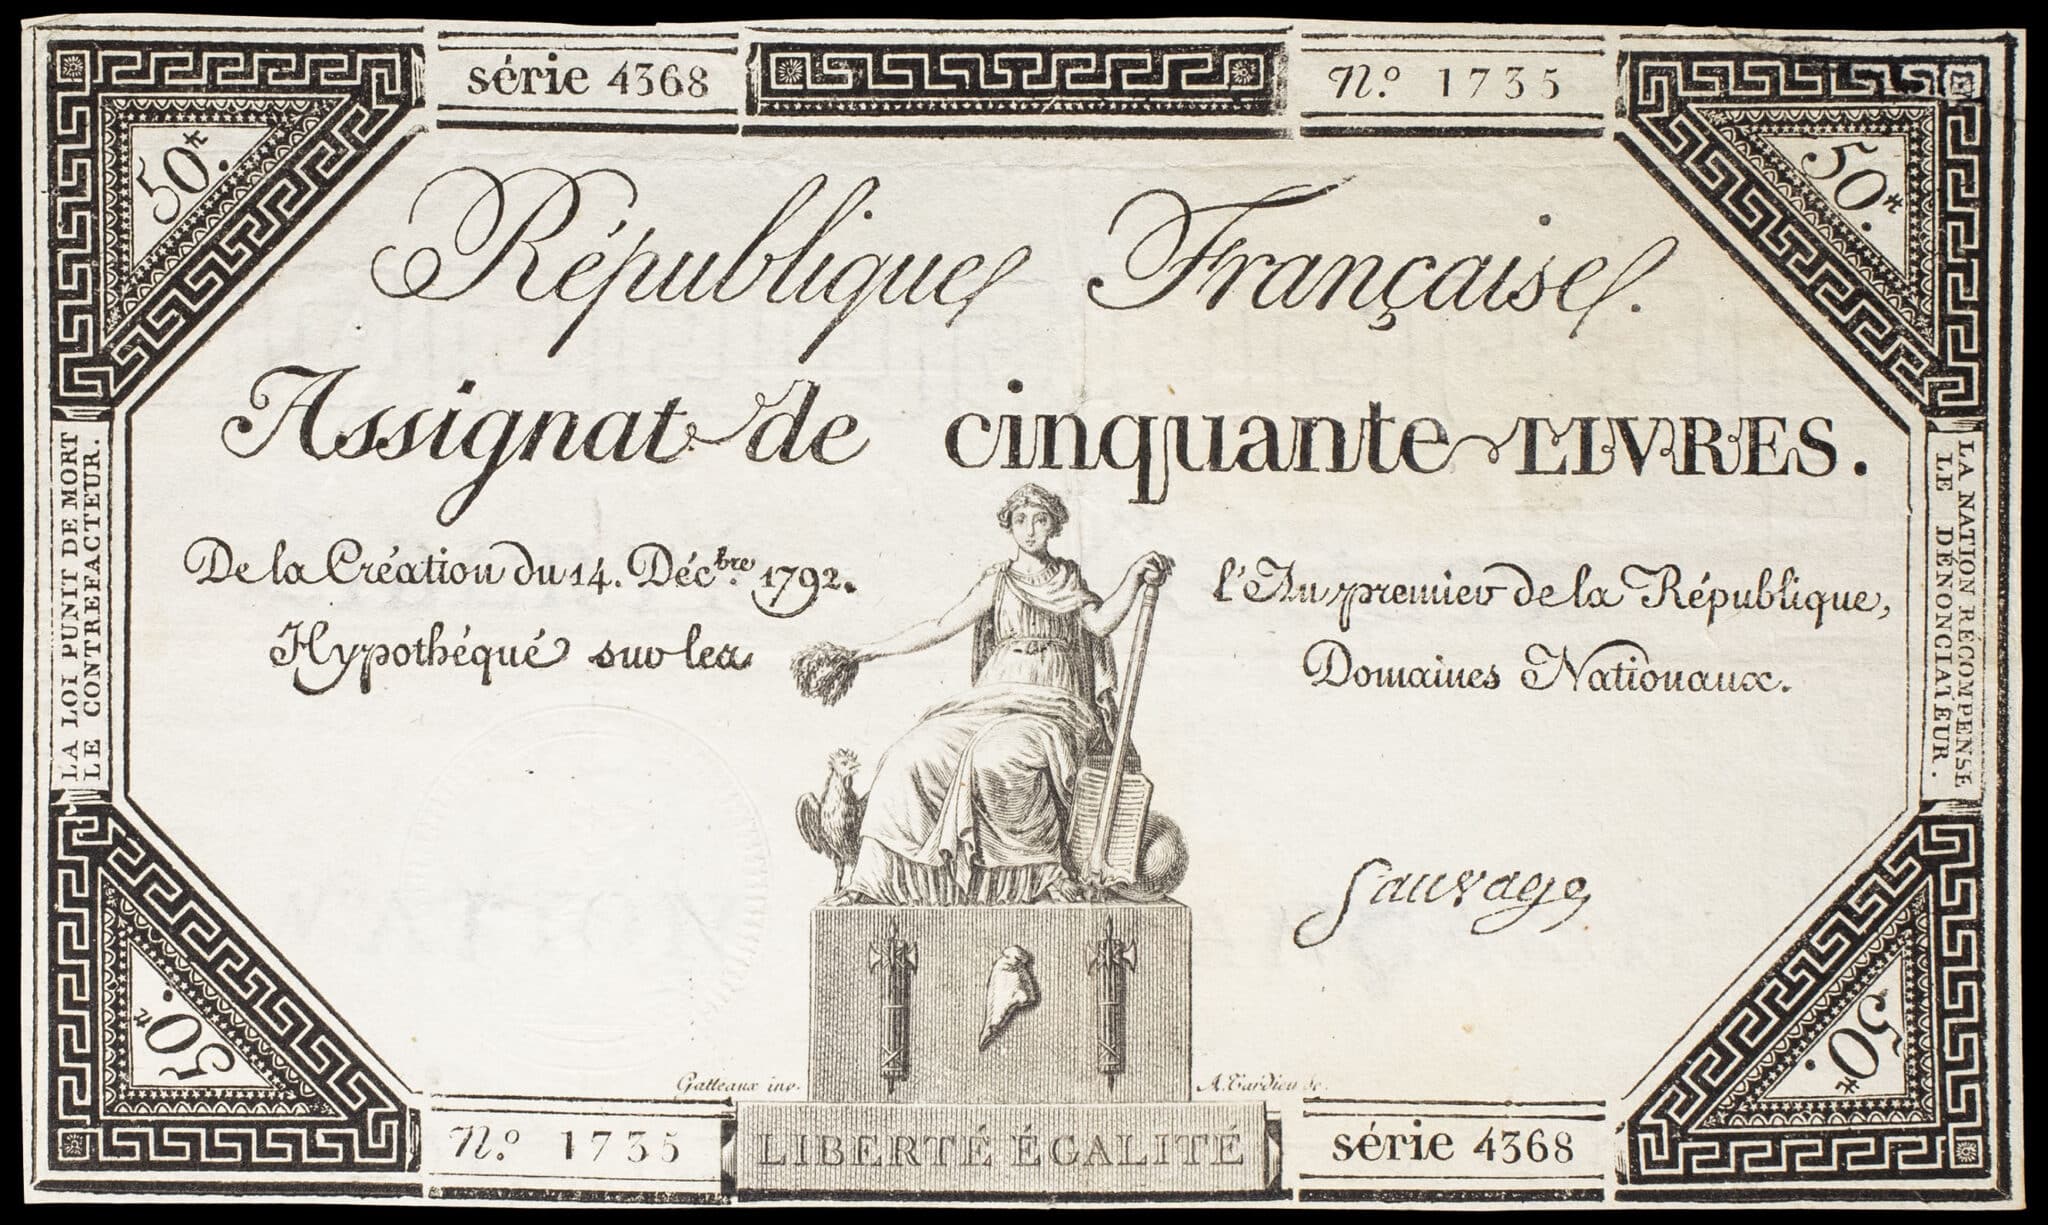 série 4368
N.º 1735
50.₶
50.₶
République Française.
Assignat de cinquante LIVRES.
De la Création du 14. Décbre. 1792.
l'An premier de la République,
Hypothéqué sur les
Domaines Nationaux.
LA LOI PUNIT DE MORT
LE CONTREFACTEUR.
LA NATION RÉCOMPENSE
LE DÉNONCIATEUR.
Sauvage
Gatteaux inv.
A. Tardieu sc.
50.₶
50.₶
N.º 1735
LIBERTÉ ÉGALITÉ
série 4368